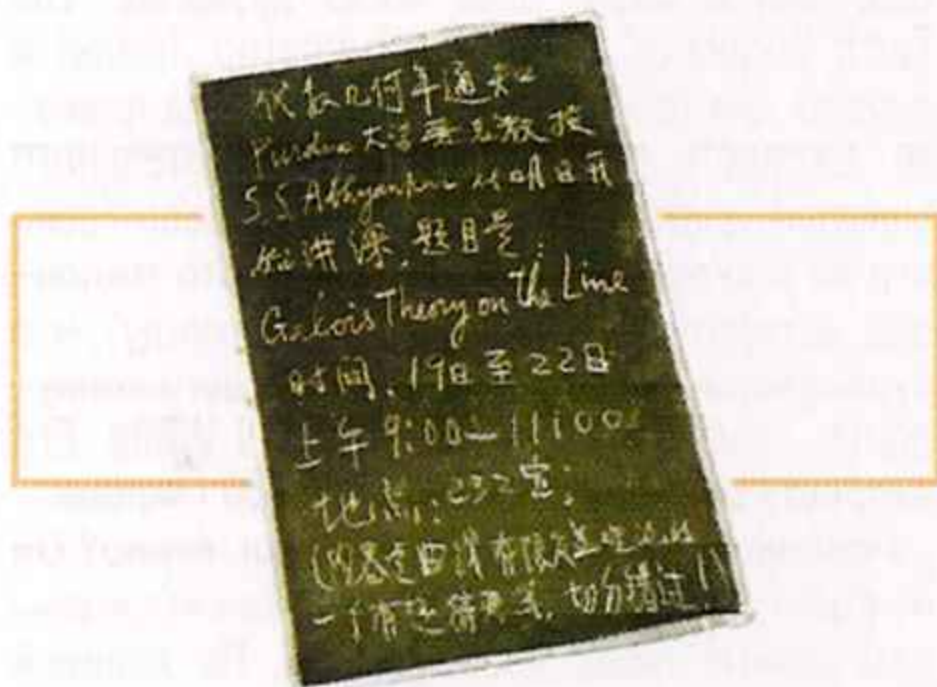 代数几何年通知
Purdue大学著名教授
S.S Abhyankar 从明日开
始讲课,题目是:
Galois Theory on the Line
时间:19日至22日
上午9:00—11:00
地点:232室;
(内容是曲线有限
一个有 猜 ,切勿错过!)